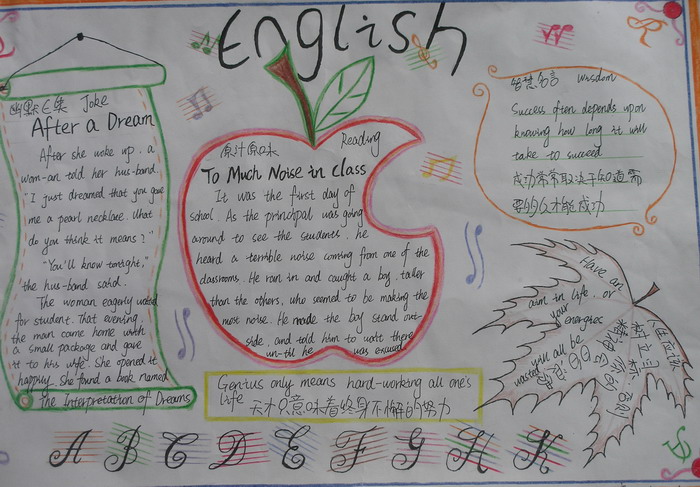 English
Joke
After a Dream
After she woke up. a
wom-an told her hus-band.
"I just dreamed that you gave
me a pearl necklace. What
do you think it means?"
"You'll know tonight."
the hus-band said.
The woman eagerly waited
for student. That evening,
the man came home with
a small package and gave
it to his wife. She opened it
happily. She found a book named
the Interpretation of Dreams
原汁原味 Reading
To Much Noise in Class
It was the first day of
school. As the principal was going
around to see the students. he
heard a terrible noise coming from one of the
classrooms. He ran in and caught a boy. taller
than the others, who seemed to be making the
most noise. He made the boy stand out-
side. and told him to wait there
un-til he was excused
Genius only means hard-working all one's
life
天才只意味着终身不懈的努力
智慧名言 wisdom
Success often depends upon
knowing how long it will
take to succeed
成功常常取决于知道需
要多久才能成功
Have an
aim in life. or
your energies
will all be
wasted
A B C D E F G H K